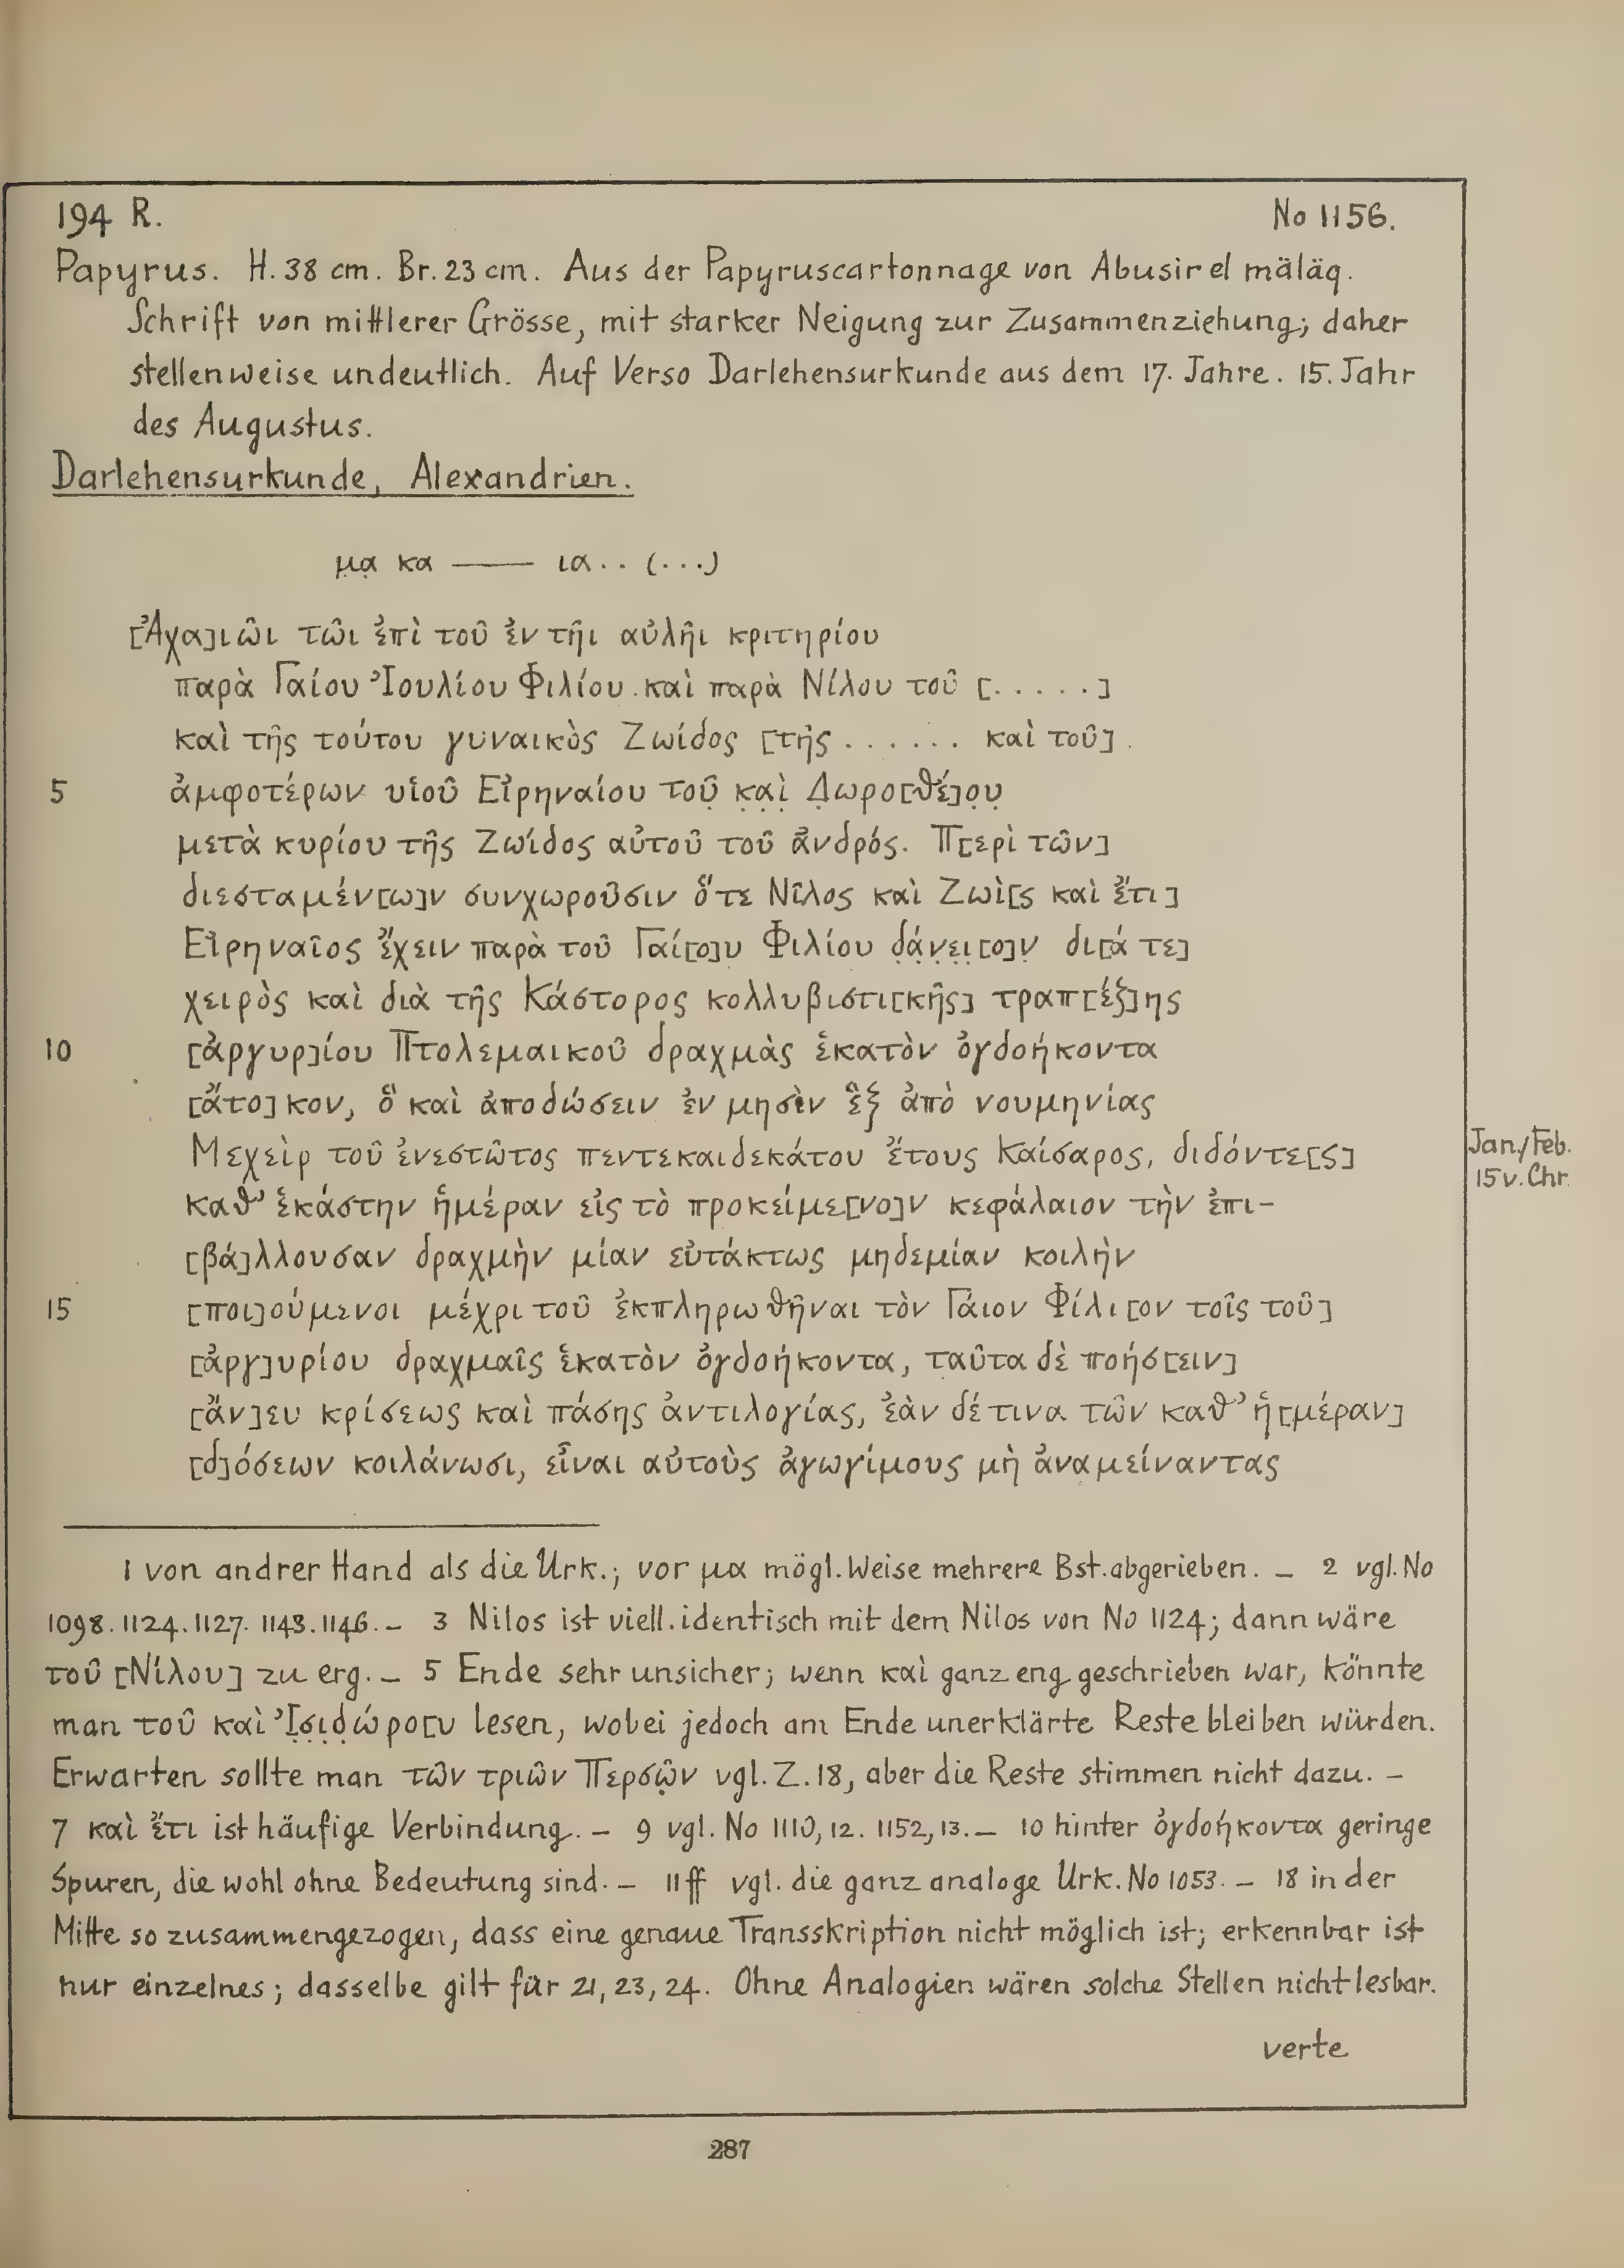 194 R. No 1156.
Papyrus. H. 38 cm. Br. 23 cm. Aus der Papyruscartonnage von Abusir el mäläq.
Schrift von mittlerer Grösse, mit starker Neigung zur Zusammenziehung; daher
stellenweise undeutlich. Auf Verso Darlehensurkunde aus dem 17. Jahre. 15. Jahr
des Augustus.
Darlehensurkunde, Alexandrien.
μ̣α̣ κα —— ια.. (...)
[Ἀχα]ιῶι τῶι ἐπὶ τοῦ ἐν τῆι αὐλῆι κριτηρίου
παρὰ Γαίου Ἰουλίου Φιλίου καὶ παρὰ Νίλου τοῦ [.....]
καὶ τῆς τούτου γυναικὸς Ζωίδος [τῆς ...... καὶ τοῦ]
5 ἀμφοτέρων υἱοῦ Εἰρηναίου τοῦ̣ κ̣α̣ὶ̣ Δ̣ωρο[θέ]ο̣υ̣
μετὰ κυρίου τῆς Ζωίδος αὐτοῦ τοῦ ἀνδρός. Π[ερὶ τῶν]
διεσταμέν[ω]ν συνχωροῦσιν ὅτε Νῖλος καὶ Ζωὶ[ς καὶ ἔτι]
Εἰρηναῖος ἔχειν παρὰ τοῦ Γαί[ο]υ Φιλίου δ̣ά̣ν̣ε̣ι̣[ο]ν̣ δι[ά τε]
χειρὸς καὶ διὰ τῆς Κάστορος κολλυβιστι[κῆς] τραπ[έζ]ης
10 [ἀργυρ]ίου Πτολεμαικοῦ δραχμὰς ἑκατὸν ὀγδοήκοντα
[ἄτο]κον, ὃ καὶ ἀποδώσειν ἐν μησὶν ἓξ ἀπὸ νουμηνίας
Μεχεὶρ τοῦ ἐνεστῶτος πεντεκαιδεκάτου ἔτους Καίσαρος, διδόντε[ς] Jan./Feb.
15 v. Chr.
καθ’ ἑκάστην ἡμέραν εἰς τὸ προκείμε[νο]ν κεφάλαιον τὴν ἐπι-
[βά]λλουσαν δραχμὴν μίαν εὐτάκτως μηδεμίαν κοιλὴν
15 [ποι]ούμενοι μέχρι τοῦ ἐκπληρωθῆναι τὸν Γάιον Φίλι[ον τοῖς τοῦ]
[ἀργ]υρίου δραχμαῖς ἑκατὸν ὀγδοήκοντα, ταῦτα δὲ ποήσ[ειν]
[ἄν]ευ κρίσεως καὶ πάσης ἀντιλογίας, ἐὰν δέ τινα τῶν καθ’ ἡ[μέραν]
[δ]όσεων κοιλάνωσι, εἶναι αὐτοὺς ἀγωγίμους μὴ ἀναμείναντας
1 von andrer Hand als die Urk.; vor μα mögl. Weise mehrere Bst. abgerieben. – 2 vgl. No
1098. 1124. 1127. 1143. 1146. – 3 Nilos ist viell. identisch mit dem Nilos von No 1124; dann wäre
τοῦ [Νίλου] zu erg. – 5 Ende sehr unsicher; wenn καὶ ganz eng geschrieben war, könnte
man τοῦ καὶ Ἰ̣σ̣ι̣δ̣ώρο[υ lesen, wobei jedoch am Ende unerklärte Reste bleiben würden.
Erwarten sollte man τῶν τριῶν Περσῶ̣ν vgl. Z. 18, aber die Reste stimmen nicht dazu. –
7 καὶ ἔτι ist häufige Verbindung. – 9 vgl. No 1110, 12. 1152, 13. – 10 hinter ὀγδοήκοντα geringe
Spuren, die wohl ohne Bedeutung sind. – 11 ff vgl. die ganz analoge Urk. No 1053. – 18 in der
Mitte so zusammengezogen, dass eine genaue Transskription nicht möglich ist; erkennbar ist
nur einzelnes; dasselbe gilt für 21, 23, 24. Ohne Analogien wären solche Stellen nicht lesbar.
verte
287